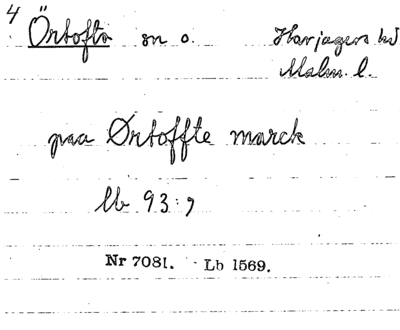 4
Örtofta sn o. Harjagers hd
Malm. l.
paa Ørtoffte marck
lb 93:9
Nr 7081. Lb 1569.